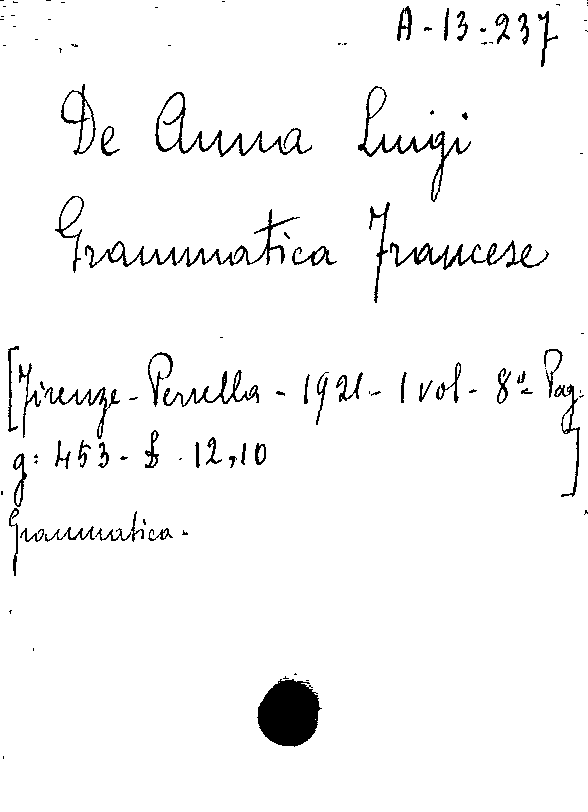 A-13-237
De Anna Luigi
Grammatica Francese
[Firenze - Perrella - 1921 - 1 vol - 8º - Pag:
g: 453 - £. 12,10]
Grammatica -